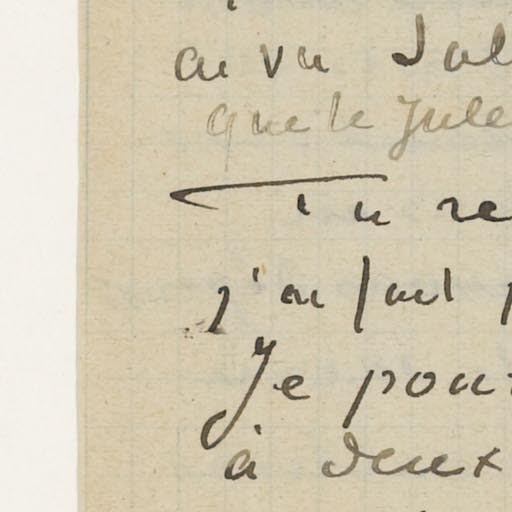 ai vu Jul
que le Jule
Tu re
j'ai fait p
Je pour
à deux